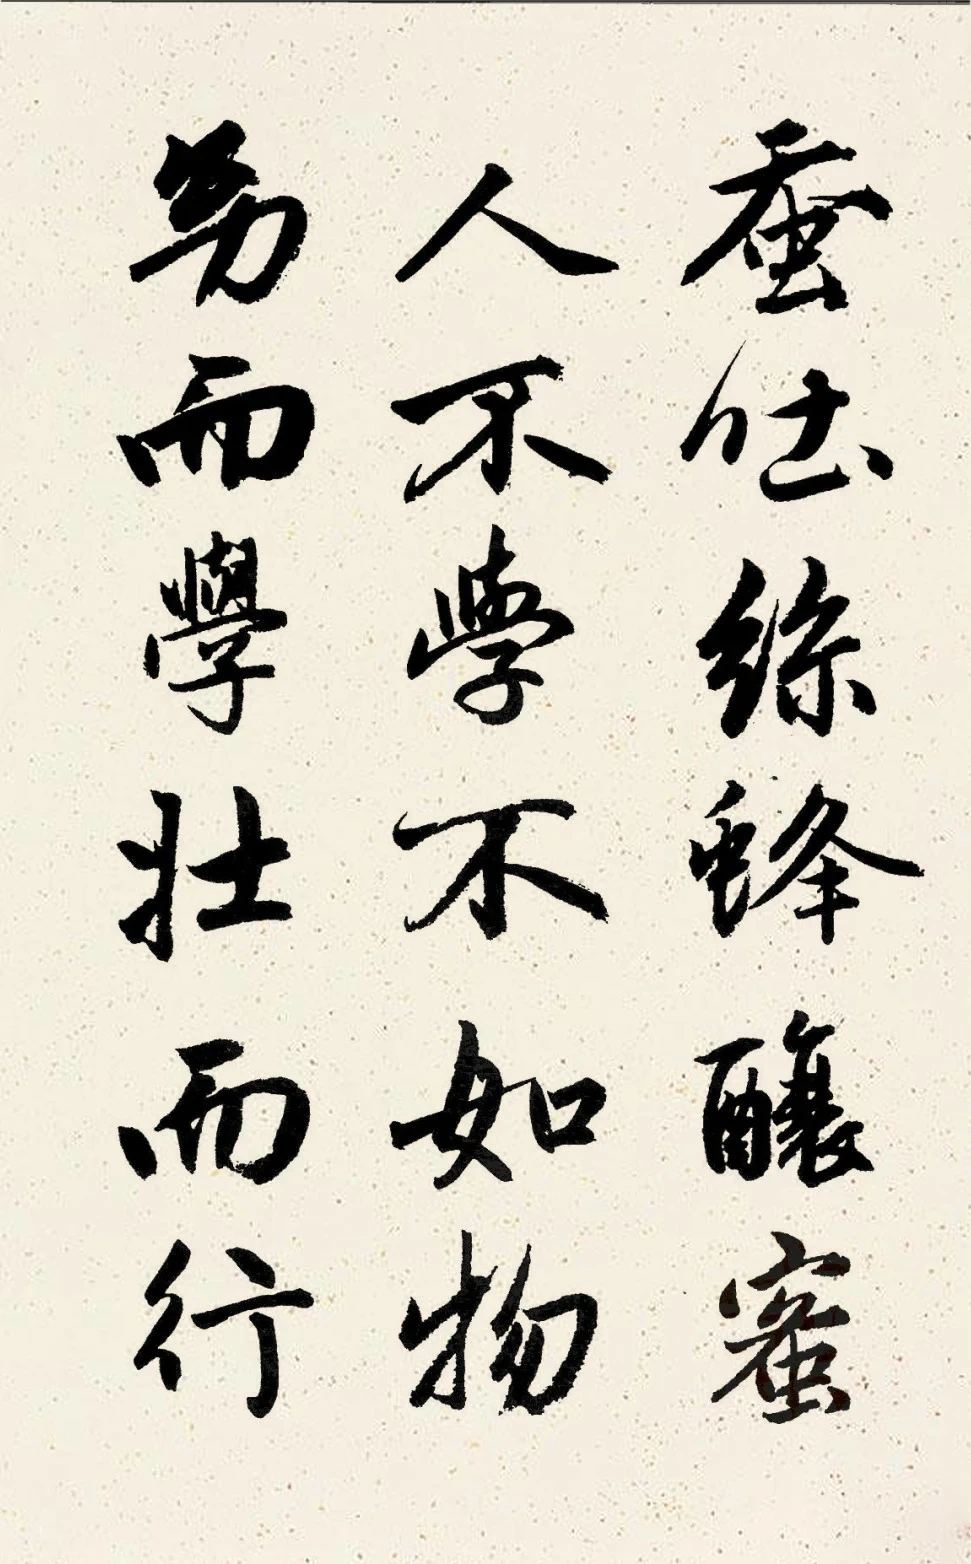 蚕吐絲蜂釀蜜
人不學不如物
㓜而學壯而行